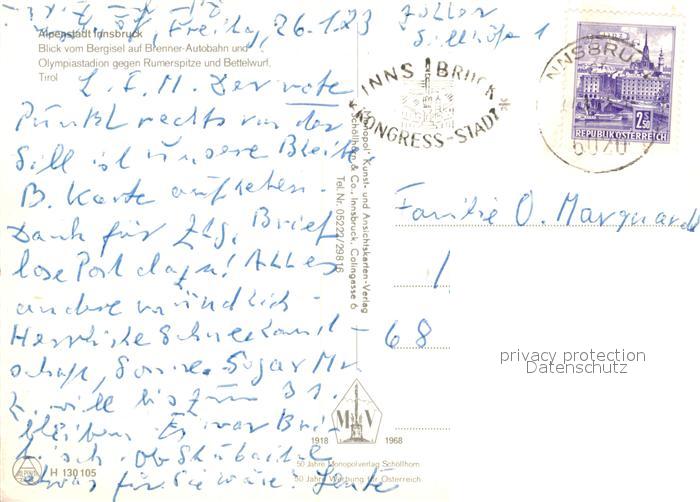 Alpenstadt Innsbruck
Blick vom Bergisel auf Brenner-Autobahn und
Olympiastadion gegen Rumerspitze und Bettelwurf,
Tirol
Freitag, 26.1.23
L. F. M. Der rote
Punkt rechts von der
Sill ist unsere Bleibe
B. Karte aufheben.
Dank für Ztg, Brief
lose Post dazu! Alles
andere mündlich.
Herrliche Schneeland-
schaft, Sonne. Sogar
will bis zum 31.
bleiben. Er war
Ob Stubaital
etwas für Sie wäre? Heute
H 130 105
Monopol- Kunst- und Ansichtskarten-Verlag
Schöllhorn & Co., Innsbruck, Colingasse 6
Tel. Nr. 05222/29816
INNSBRUCK
KONGRESS-STADT
INNSBRUCK
6020
2.50 S
REPUBLIK ÖSTERREICH
Familie O. Marquardt
1
68
privacy protection
Datenschutz
MV
1918 1968
50 Jahre Monopolverlag Schöllhorn
50 Jahre Werbung für Österreich